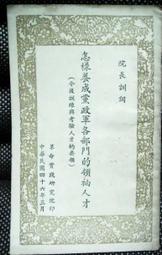 院長訓詞
怎樣養成黨政軍各部門的領袖人才
(今後訓練與考驗人才的要領)
革命實踐研究院印
中華民國四十六年三月